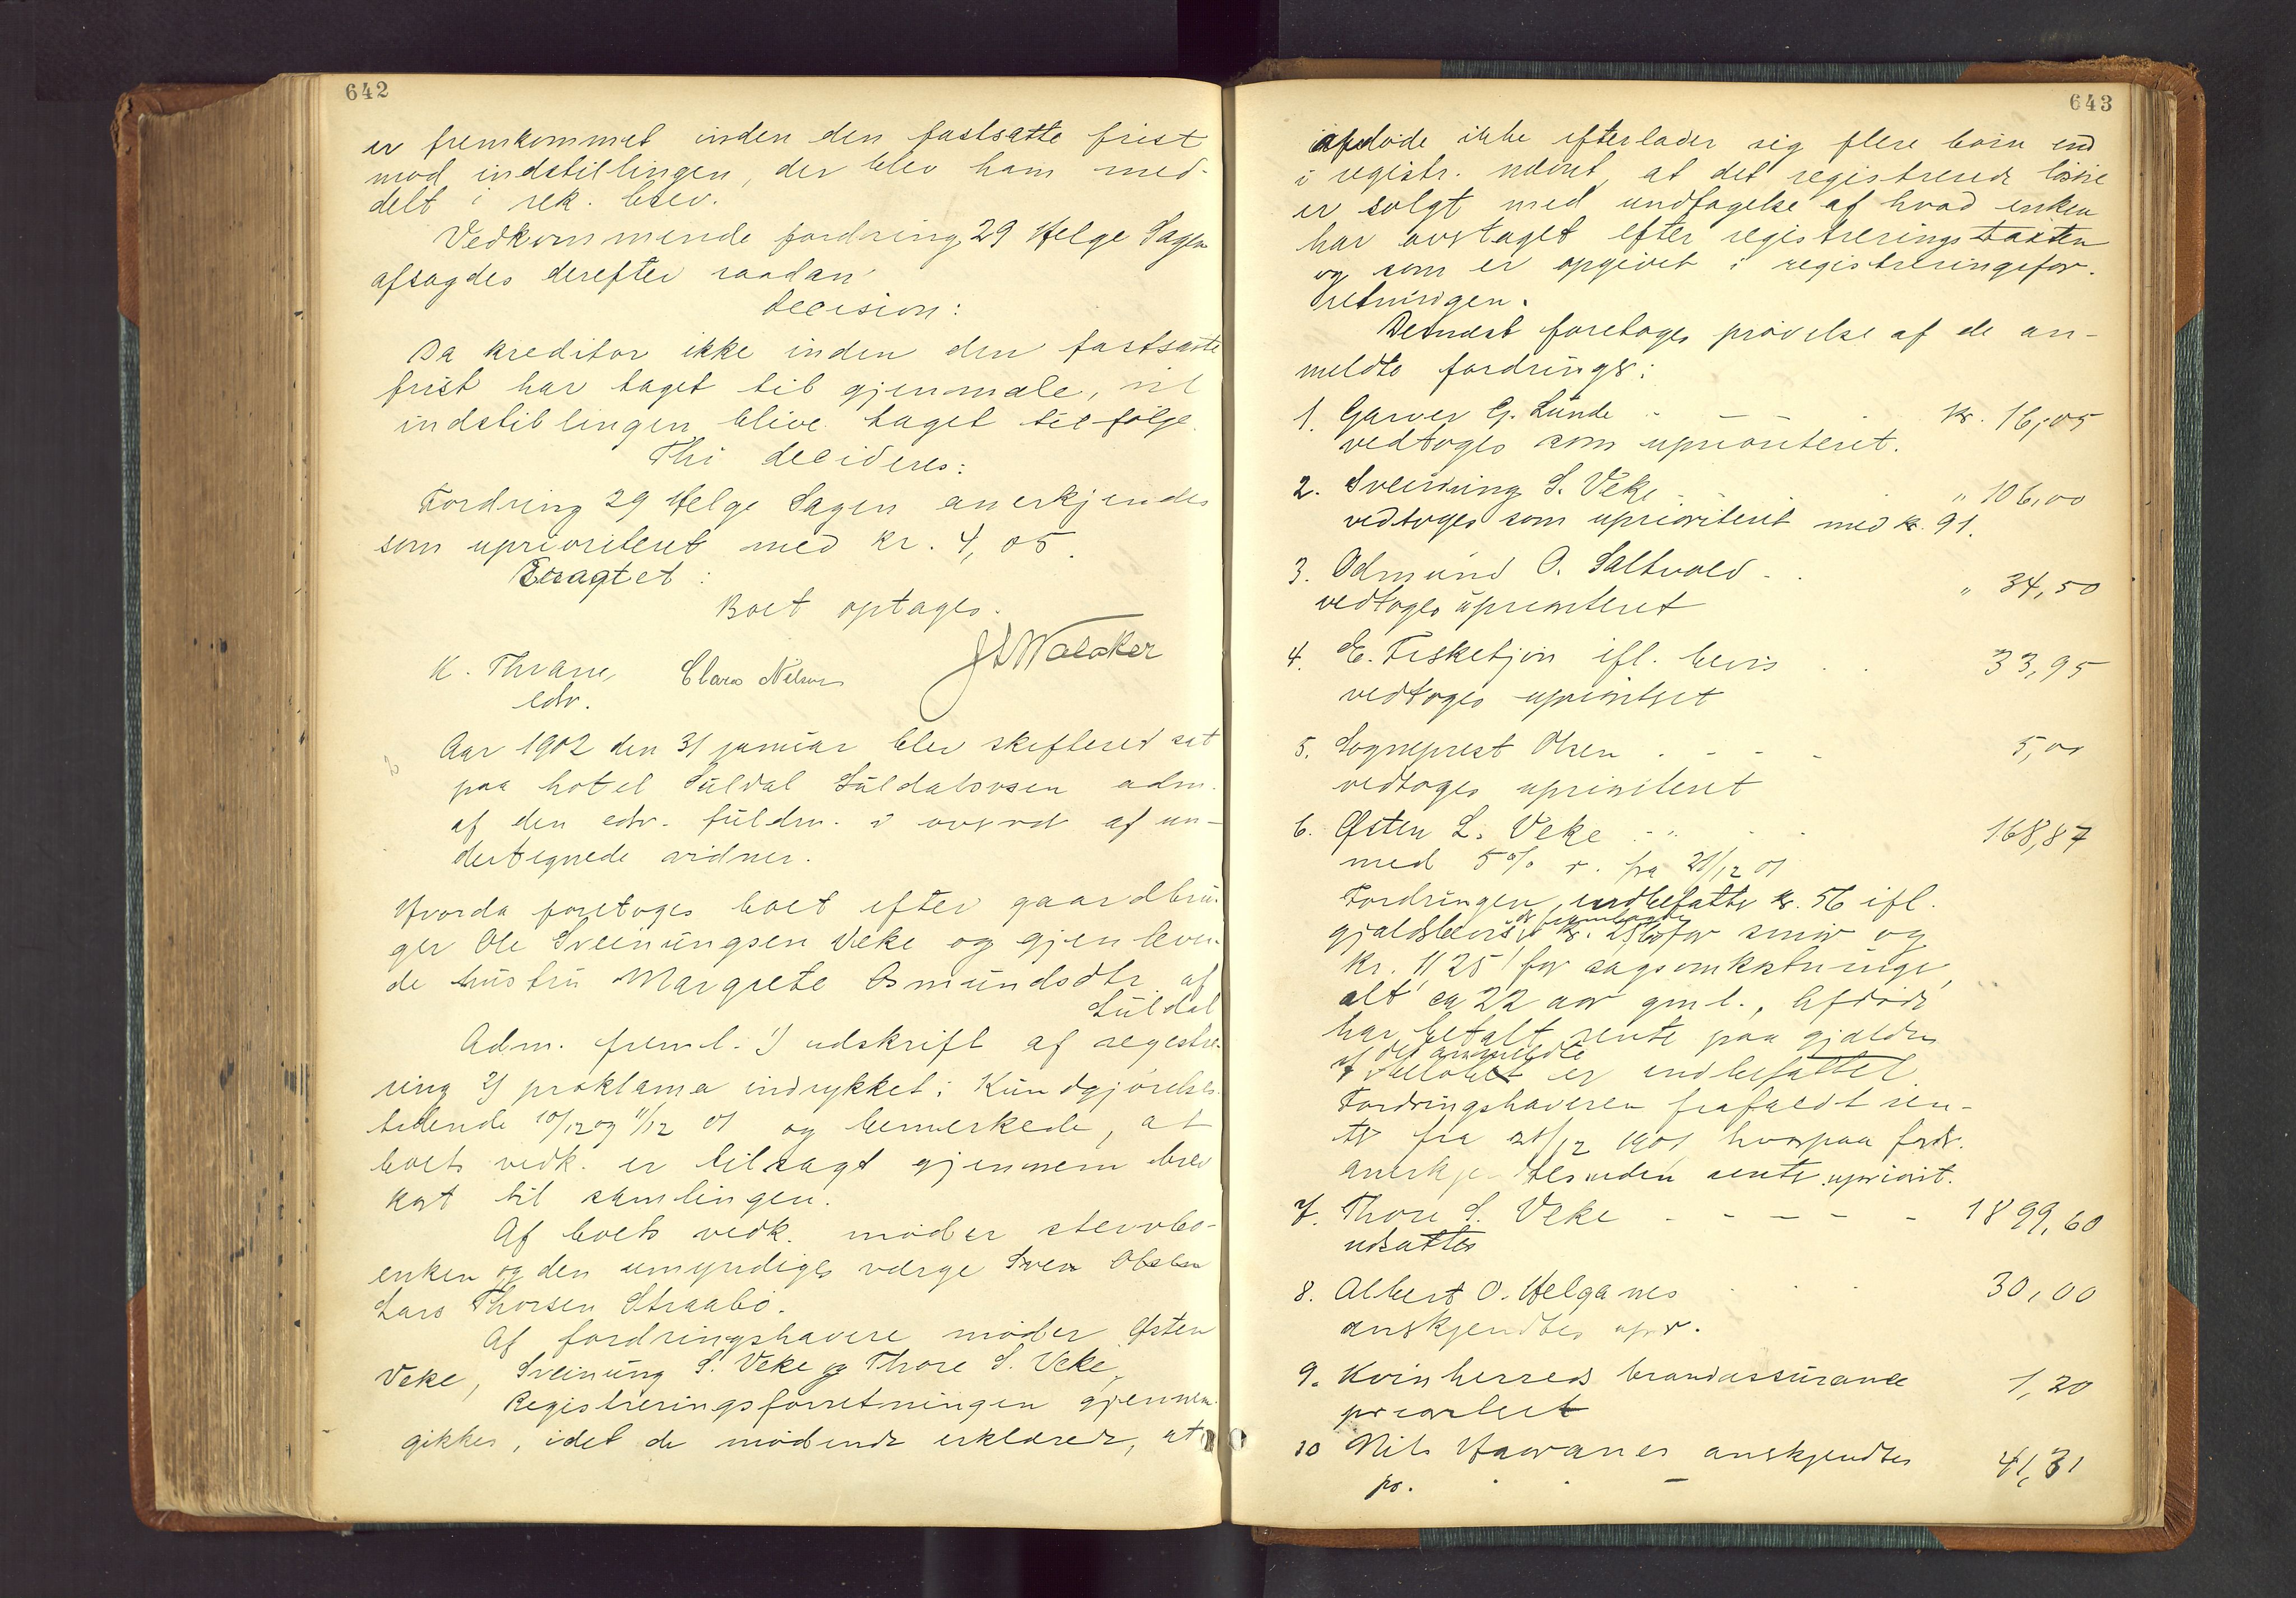 642
er fremkommet inden den fastsatte frist
mod indstillingen, der blev ham med-
delt i rek. brev.
Vedkommende fordring 29 Helge Sagen
afsagdes derefter saadan
decision:
Da kreditor ikke inden den fastsatte
frist har taget til gjenmæle, vil
indstillingen blive taget tilfølge.
Thi decideres:
Fordring 29 Helge Sagen anerkjendes
som uprioriteret med kr. 4,05.
Eragtet:
Boet optages.
JSWalaker
K. Thrane, Clara Nelson
edv.
Aar 1902 den 31 januar blev skifteret sat
paa hotel Suldal Suldalsosen adm.
af den edv. fuldm. i overvær af un-
dertegnede vidner.
Hvorda foretoges boet efter gaardbru-
ger Ole Sveinungsen Veke og gjenleven-
de hustru Margrete Osmundsdtr. af
Suldal
Adm. freml. 1) udskrift af registre-
ring 2) proklama indrykket i Kundgjørelses-
tidende 10/12 og 11/12 01 og bemerkede, at
boets vedk. er tilsagt gjennem brev
kort til samlingen.
Af boets vedk. møder stervbo-
enken og den umyndiges værge Sven Olsen
Lars Thorsen Straabø.
Af fordringshavere møder Østen
Veke, Sveinung S. Veke og Thore S. Veke.
Registreringsforretningen gjennem-
gikkes, idet de mødende erklærede, at
643
afdøde ikke efterlader sig flere børn end
i registr. nævnt, at det registrerede løsøre
er solgt med undtagelse af hvad enken
har overtaget efter registreringstaxten
og som er opgivet i registreringsfor-
retningen.
Dernæst foretoges prøvelse af de an-
meldte fordringer:
1. Garver G. Lunde - - - kr. 16,05
vedtoges som uprioriteret.
2. Sveinung S. Veke - - " 106,00
vedtoges som uprioriteret med kr. 91.
3. Odmund O. Saltvold - . " 34,50
vedtoges uprioriteret
4. E. Fisketjøn ifl. bevis . . 33,95
vedtoges uprioriteret
5. Sogneprest Olsen . - - - 5,00
vedtoges uprioriteret
6. Østen L. Veke - - - 168,87
med 5% r. fra 21/12 01
Fordringen indbefatter kr. 56 ifl.
gjældsbevis kr. for smør og
kr. 11 25 for sagsomkostninger,
alt ca 22 aar gml., Afdøde
har betalt rente paa gjælden
af det anmeldte
beløbet er indbefattet.
Fordringshaveren frafaldt ren-
ter fra 21/12 1901 hvorpaa fordr.
anerkjendtes uden rente upriorit.
7. Thore S. Veke - - - - - 1899,60
udsattes
8. Albert O. Helganes . . 30,00
anerkjendtes upr.
9. Kvinherreds brandassurance 1,20
prioritert
10 Nils Havanes anerkjendtes 41,31
pr. . . -